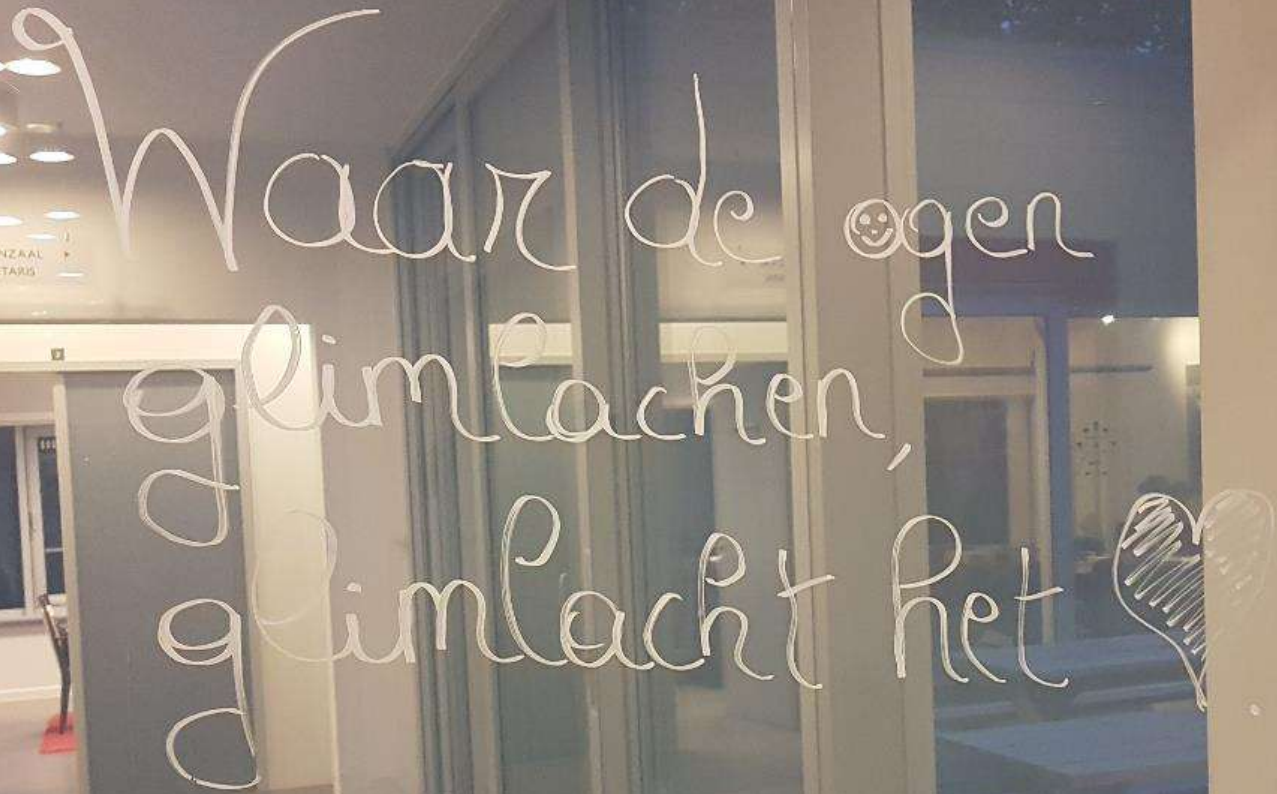 Waar de ogen
glimlachen,
glimlacht het
NZAAL
TARIS